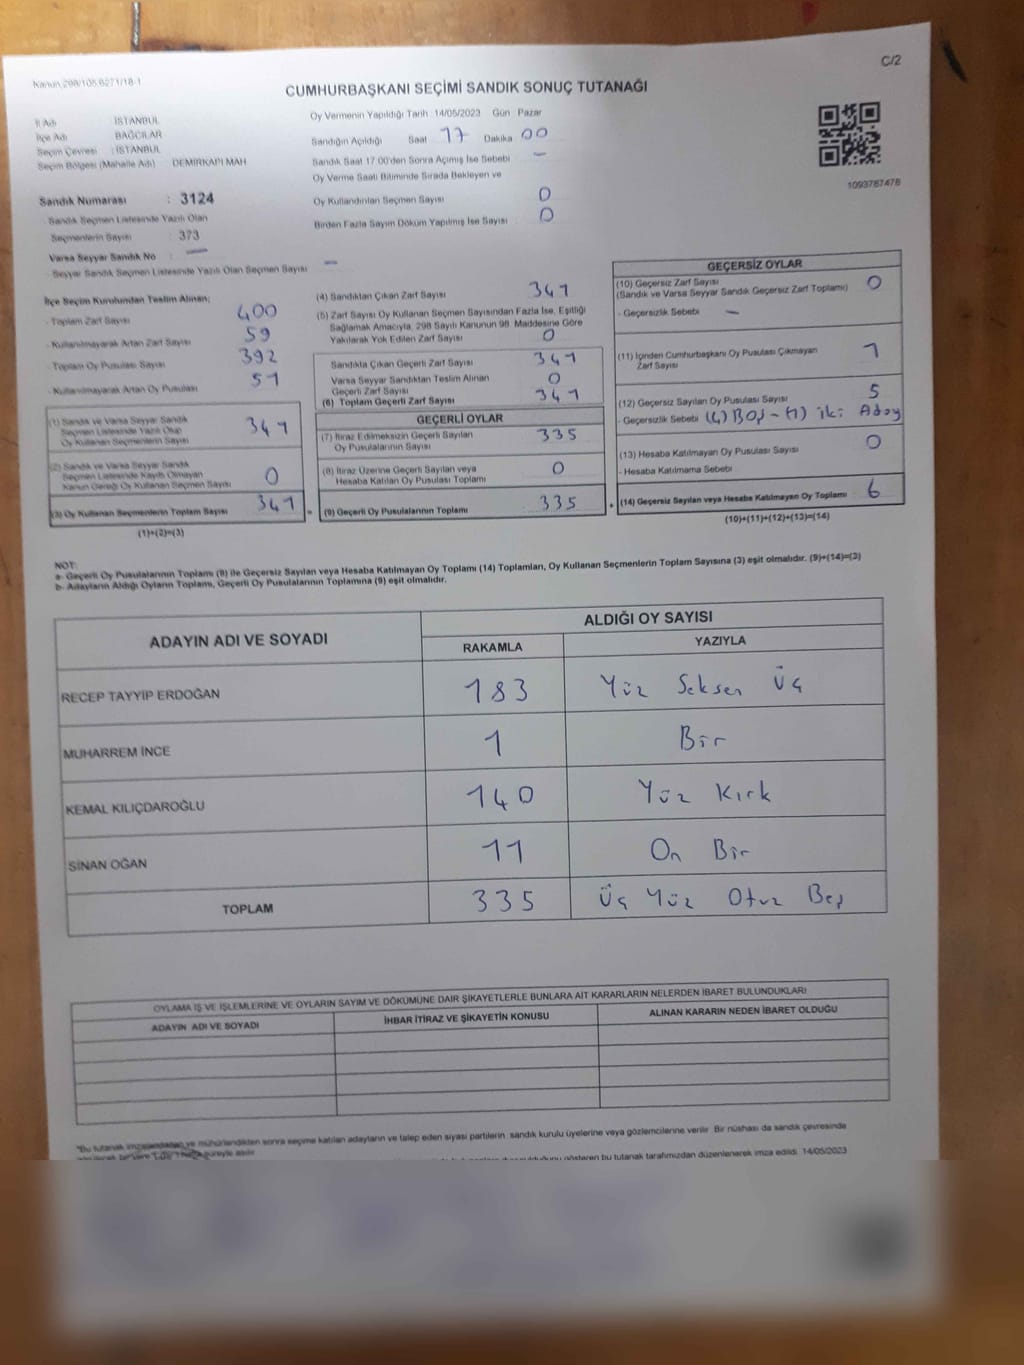 C/2
Kanun 298/105,6271/18-1
CUMHURBAŞKANI SEÇİMİ SANDIK SONUÇ TUTANAĞI
İl Adı : İSTANBUL
İlçe Adı : BAĞCILAR
Seçim Çevresi : İSTANBUL
Seçim Bölgesi (Mahalle Adı) : DEMİRKAPI MAH
Oy Vermenin Yapıldığı Tarih : 14/05/2023 Gün : Pazar
Sandığın Açıldığı Saat 17 Dakika 00
Sandık Saat 17:00'den Sonra Açımış İse Sebebi : -
Oy Verme Saati Bitiminde Sırada Bekleyen ve
Oy Kullandırılan Seçmen Sayısı 0
Birden Fazla Sayım Döküm Yapılmış İse Sayısı : 0
1093787478
Sandık Numarası : 3124
Sandık Seçmen Listesinde Yazılı Olan
Seçmenlerin Sayısı : 373
Varsa Seyyar Sandık No : -
- Seyyar Sandık Seçmen Listesinde Yazılı Olan Seçmen Sayısı : -
İlçe Seçim Kurulundan Teslim Alınan;
- Toplam Zarf Sayısı 400
- Kullanılmayarak Artan Zarf Sayısı 59
- Toplam Oy Pusulası Sayısı 392
- Kullanılmayarak Artan Oy Pusulası 51
(1) Sandık ve Varsa Seyyar Sandık
Seçmen Listesinde Yazılı Olup
Oy Kullanan Seçmenlerin Sayısı 341
(2) Sandık ve Varsa Seyyar Sandık
Seçmen Listesinde Kayıtlı Olmayan
Kanun Gereği Oy Kullanan Seçmen Sayısı 0
(3) Oy Kullanan Seçmenlerin Toplam Sayısı 341
(1)+(2)=(3)
(4) Sandıktan Çıkan Zarf Sayısı 341
(5) Zarf Sayısı Oy Kullanan Seçmen Sayısından Fazla İse, Eşitliği
Sağlamak Amacıyla, 298 Sayılı Kanunun 98. Maddesine Göre
Yakılarak Yok Edilen Zarf Sayısı 0
Sandıkta Çıkan Geçerli Zarf Sayısı : 341
Varsa Seyyar Sandıktan Teslim Alınan
Geçerli Zarf Sayısı : 0
(6) Toplam Geçerli Zarf Sayısı : 341
GEÇERLİ OYLAR
(7) İtiraz Edilmeksizin Geçerli Sayılan
Oy Pusulalarının Sayısı : 335
(8) İtiraz Üzerine Geçerli Sayılan veya
Hesaba Katılan Oy Pusulası Toplamı : 0
(9) Geçerli Oy Pusulalarının Toplamı : 335
GEÇERSİZ OYLAR
(10) Geçersiz Zarf Sayısı
(Sandık ve Varsa Seyyar Sandık Geçersiz Zarf Toplamı) : 0
- Geçersizlik Sebebi : -
(11) İçinden Cumhurbaşkanı Oy Pusulası Çıkmayan
Zarf Sayısı : 1
(12) Geçersiz Sayılan Oy Pusulası Sayısı : 5
- Geçersizlik Sebebi : (4) Boş - (1) iki Aday
(13) Hesaba Katılmayan Oy Pusulası Sayısı : 0
- Hesaba Katılmama Sebebi :
(14) Geçersiz Sayılan veya Hesaba Katılmayan Oy Toplamı : 6
(10)+(11)+(12)+(13)=(14)
NOT:
a- Geçerli Oy Pusulalarının Toplamı (9) ile Geçersiz Sayılan veya Hesaba Katılmayan Oy Toplamı (14) Toplamları, Oy Kullanan Seçmenlerin Toplam Sayısına (3) eşit olmalıdır. (9)+(14)=(3)
b- Adayların Aldığı Oyların Toplamı, Geçerli Oy Pusulalarının Toplamına (9) eşit olmalıdır.
ADAYIN ADI VE SOYADI ALDIĞI OY SAYISI
RAKAMLA YAZIYLA
RECEP TAYYİP ERDOĞAN 183 Yüz Seksen Üç
MUHARREM İNCE 1 Bir
KEMAL KILIÇDAROĞLU 140 Yüz Kırk
SİNAN OĞAN 11 On Bir
TOPLAM 335 Üç Yüz Otuz Beş
OYLAMA İŞ VE İŞLEMLERİNE VE OYLARIN SAYIM VE DÖKÜMÜNE DAİR ŞİKAYETLERLE BUNLARA AİT KARARLARIN NELERDEN İBARET BULUNDUKLARI
ADAYIN ADI VE SOYADI İHBAR İTİRAZ VE ŞİKAYETİN KONUSU ALINAN KARARIN NEDEN İBARET OLDUĞU
*Bu tutanak imzalandıktan ve mühürlendikten sonra seçime katılan adayların ve talep eden siyasi partilerin sandık kurulu üyelerine veya gözlemcilerine verilir. Bir nüshası da sandık çevresinde
bu tutanak tarafımızdan düzenlenerek imza edildi. 14/05/2023